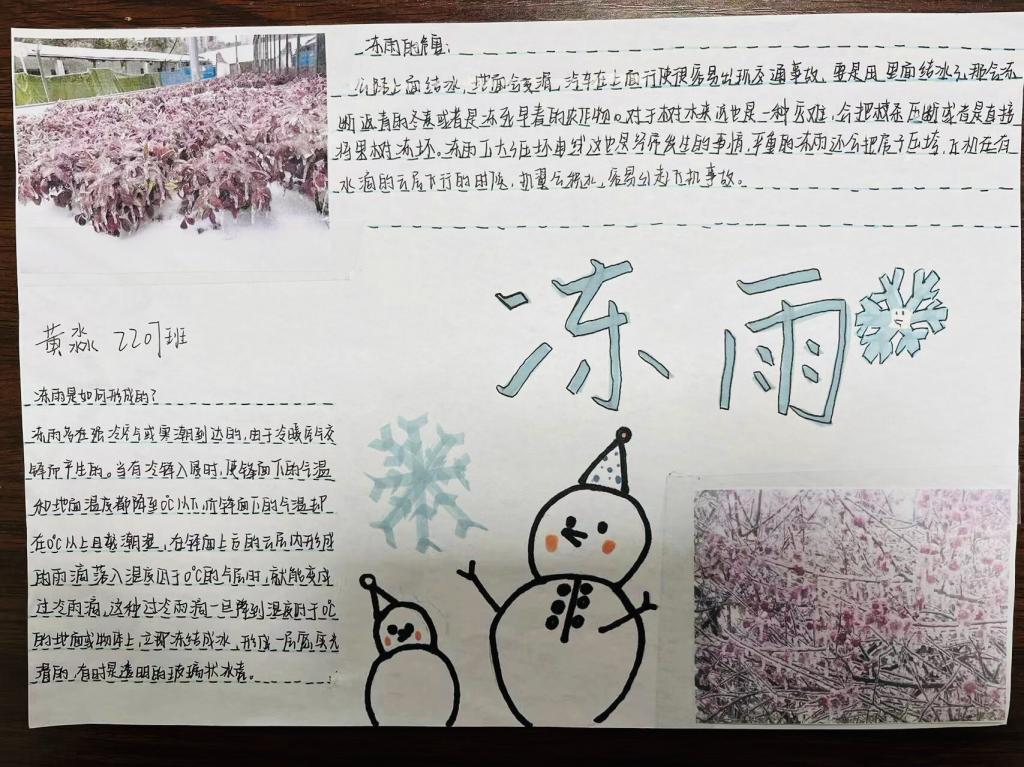 冻雨的危害:
公路上面结冰，地面会变滑，汽车在上面行使很容易出现交通事故，要是田里面结冰了那会冻
断返青的冬麦或者是冻死早春的农作物。对于树木来说也是一种灾难，会把树条压断或者是直接
将果树冻坏。冻雨下大了压坏电线这也是经常发生的事情，严重的冻雨还会把房子压垮，飞机在有
水滴的云层飞行的时候，机翼会结冰，容易引起飞机事故。
冻雨
黄淼淼 2207班
冻雨是如何形成的?
冻雨多在强冷空气或寒潮到达时，由于冷暖空气交
锋所产生的。当有冷锋入侵时，使锋面下的气温
和地面温度都降至0℃以下，而锋面上的气温却
在0℃以上且较潮湿，在锋面上方的云层内形成
的雨滴落入温度低于0℃的气层时，就能变成
过冷雨滴，这种过冷雨滴一旦降到温度低于0℃
的地面或物体上，立即冻结成冰，形成一层密实光
滑的，有时是透明的玻璃状冰壳。